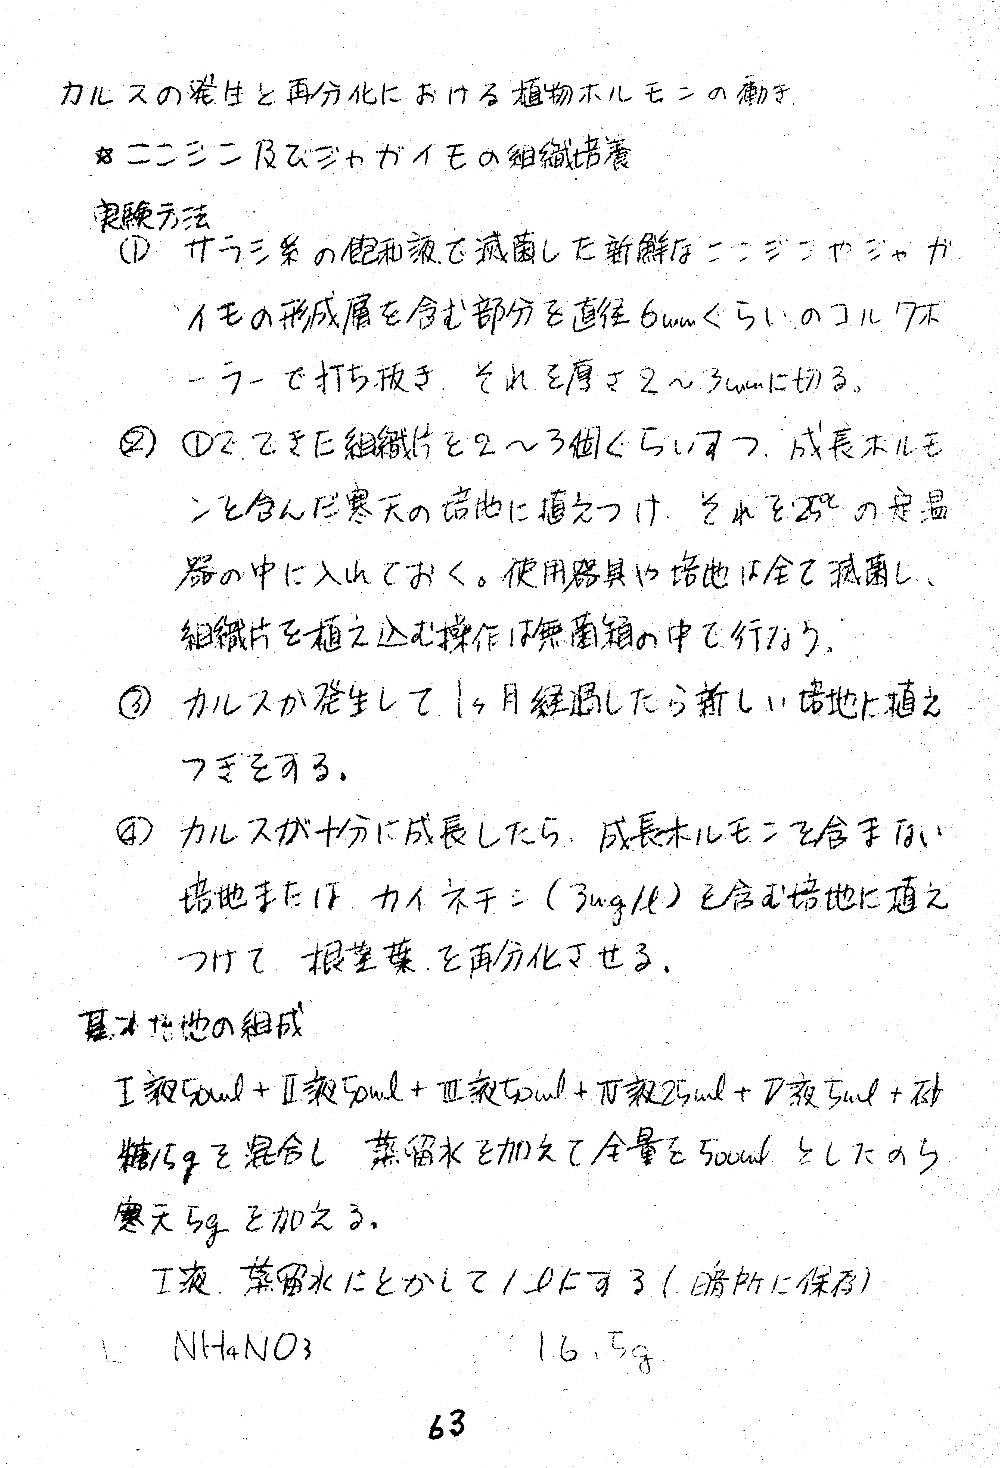 カルスの発生と再分化における植物ホルモンの働き
☆ニンジン及びジャガイモの組織培養
実験方法
① サラシ粉の飽和液で滅菌した新鮮なニンジンやジャガ
イモの形成層を含む部分を直径6mmぐらいのコルクホ
ーラーで打ち抜き、それを厚さ2〜3mmに切る。
② ①でできた組織片を2〜3個ぐらいずつ、成長ホルモ
ンを含んだ寒天の培地に植えつけ、それを25℃の定温
器の中に入れておく。使用器具や培地は全て滅菌し、
組織片を植え込む操作は無菌箱の中で行なう。
③ カルスが発生して1ヶ月経過したら新しい培地に植え
つぎをする。
④ カルスが十分に成長したら、成長ホルモンを含まない
培地または、カイネチン(3mg/l)を含む培地に植え
つけて 根茎葉を再分化させる。
基本培地の組成
Ⅰ液50ml+Ⅱ液50ml+Ⅲ液50ml+Ⅳ液25ml+Ⅴ液5ml+砂
糖15gを混合し 蒸留水を加えて全量を500ml としたのち
寒天5gを加える。
Ⅰ液 蒸留水にとかして1lにする(暗所に保存)
NH4NO3 16.5g
63